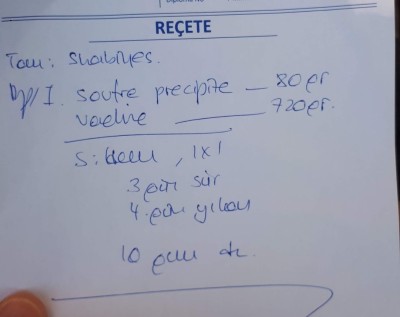 REÇETE
Tanı: Skabiyes.
I. Soufre precipite — 80 gr
vazline — 720 gr.
S: , 1x1
3 gün sür
4. gün yıkan
10 gün